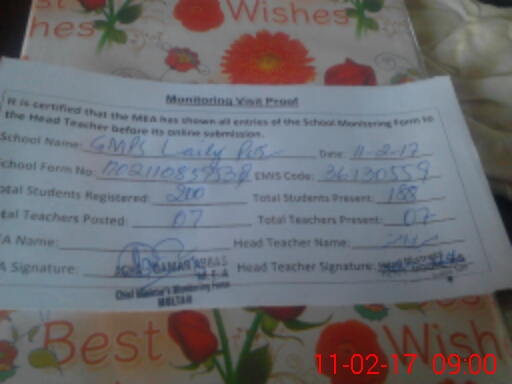 st Wishes
hes
Monitoring Visit Proof
It is certified that the MEA has shown all entries of the School Monitoring Form to
the Head Teacher before its online submission.
School Name: GMPS Date: 11-2-17
School Form No: EMIS Code: 36130559
otal Students Registered: 200 Total Students Present: 188
otal Teachers Posted: 07 Total Teachers Present: 07
EA Name: Head Teacher Name:
A Signature: QAMAR ABBAS Head Teacher Signature:
M.E.A
Chief Minister's Monitoring Force
MULTAN
Best Wish
11-02-17 09:00